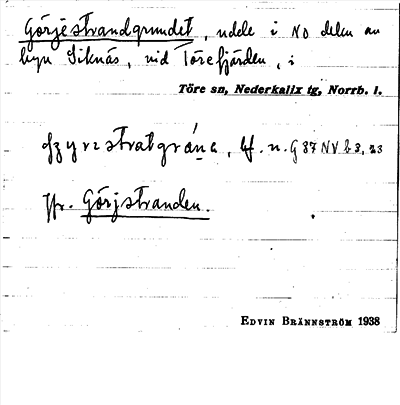 Görjestrandgrundet, udde i NO delen av
byn Siknäs, vid Törefjärden, i
Töre sn, Nederkalix tg, Norrb. l.
Jfr. Görjstranden.
EDVIN BRÄNNSTRÖM 1938